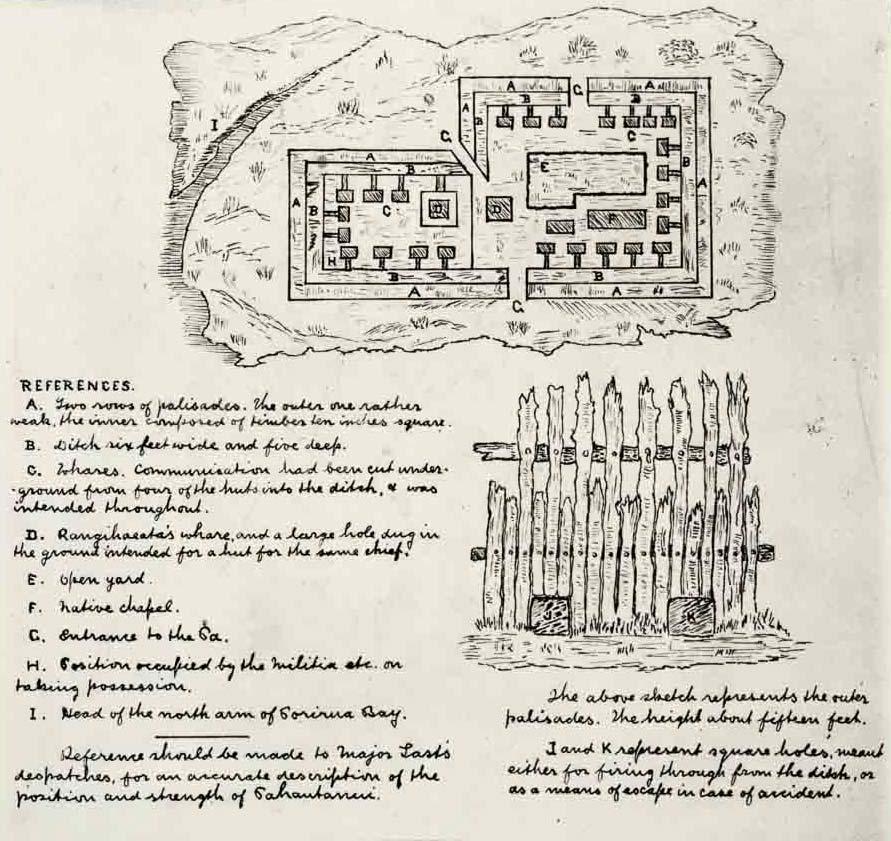 A G A
B B
I
A
B
C
G
A
B
E
B
A
A
B
C
D
D
F
B
H
B
B
A
G
A
REFERENCES.
A. Two rows of palisades. The outer one rather
weak, the inner composed of timber ten inches square.
B. Ditch six feet wide and five deep.
C. Whares. Communication had been cut under-
-ground from four of the huts into the ditch, & was
intended throughout.
D. Rangihaeata's whare, and a large hole, dug in
the ground intended for a hut for the same chief.
E. Open yard.
F. Native chapel.
G. Entrance to the Pa.
H. Position occupied by the Militia etc. on
taking possession.
I. Head of the north arm of Porirua Bay.
Reference should be made to Major Last's
despatches, for an accurate description of the
position and strength of Pahautanui.
J K
The above sketch represents the outer
palisades. The height about fifteen feet.
J and K represent square holes, meant
either for firing through from the ditch, or
as a means of escape in case of accident.